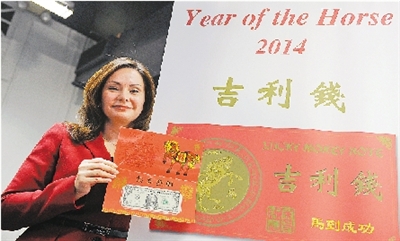 Year of the Horse
2014
吉利錢
LUCKY MONEY NOTE
吉利錢
馬到成功